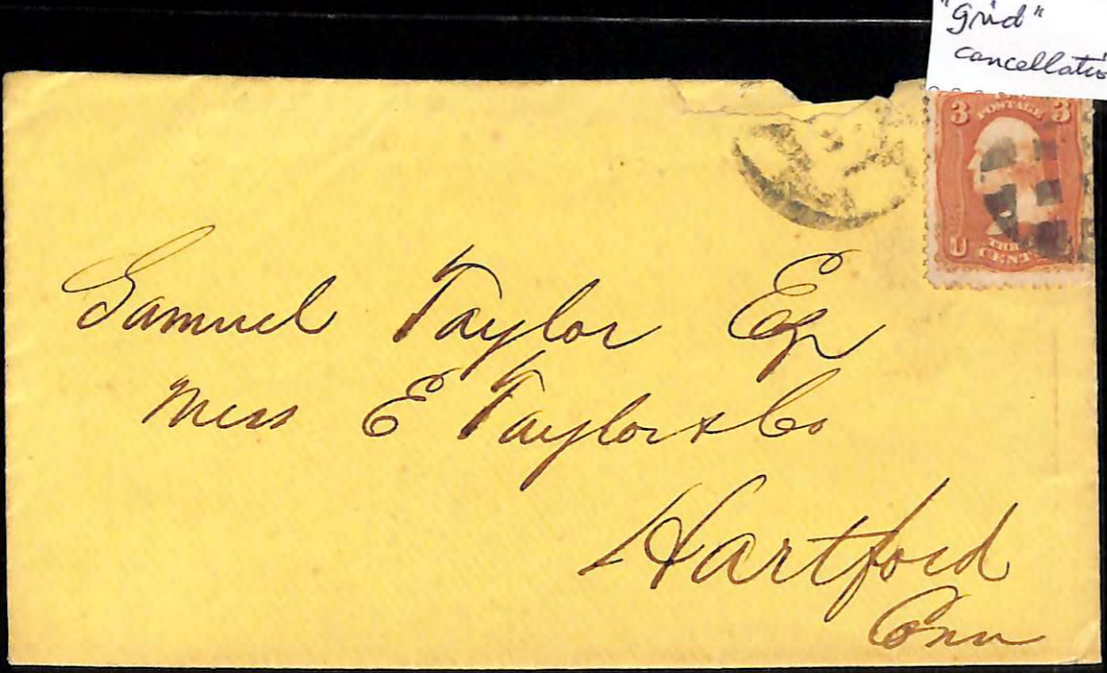 "grid"
cancellatio
3 POSTAGE 3
U
THREE
CENTS
Samuel Taylor Esq
Mess E Taylor & Co
Hartford
Conn